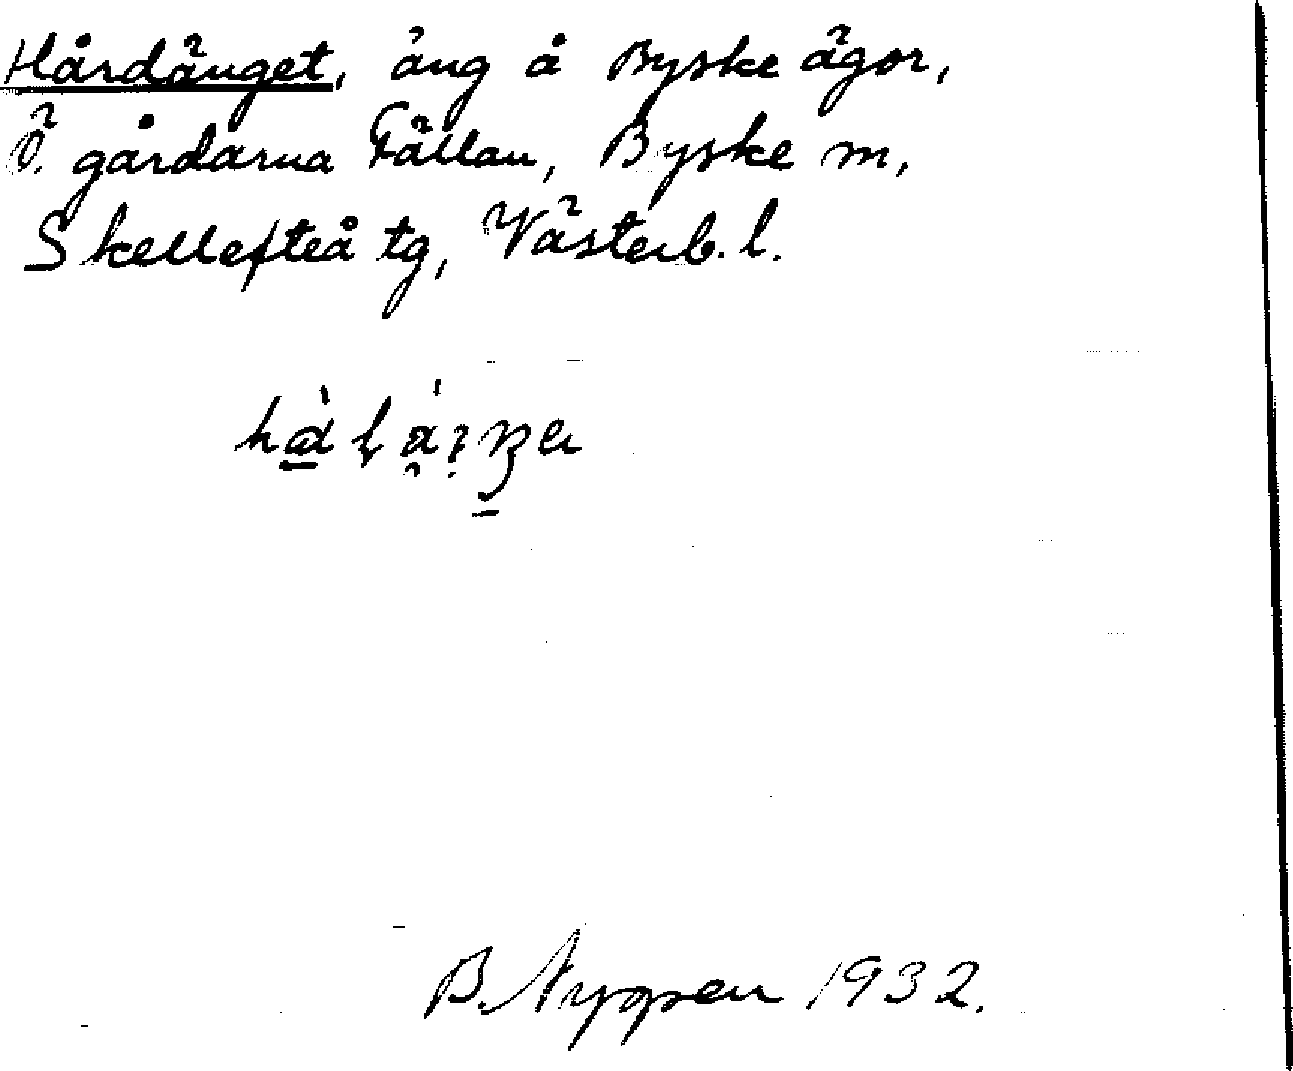 Hårdänget, äng å Byske ägor,
Ö. gårdarna Fällan, Byske sn,
Skellefteå tg, Västerb. l.
B. Nygren 1932.